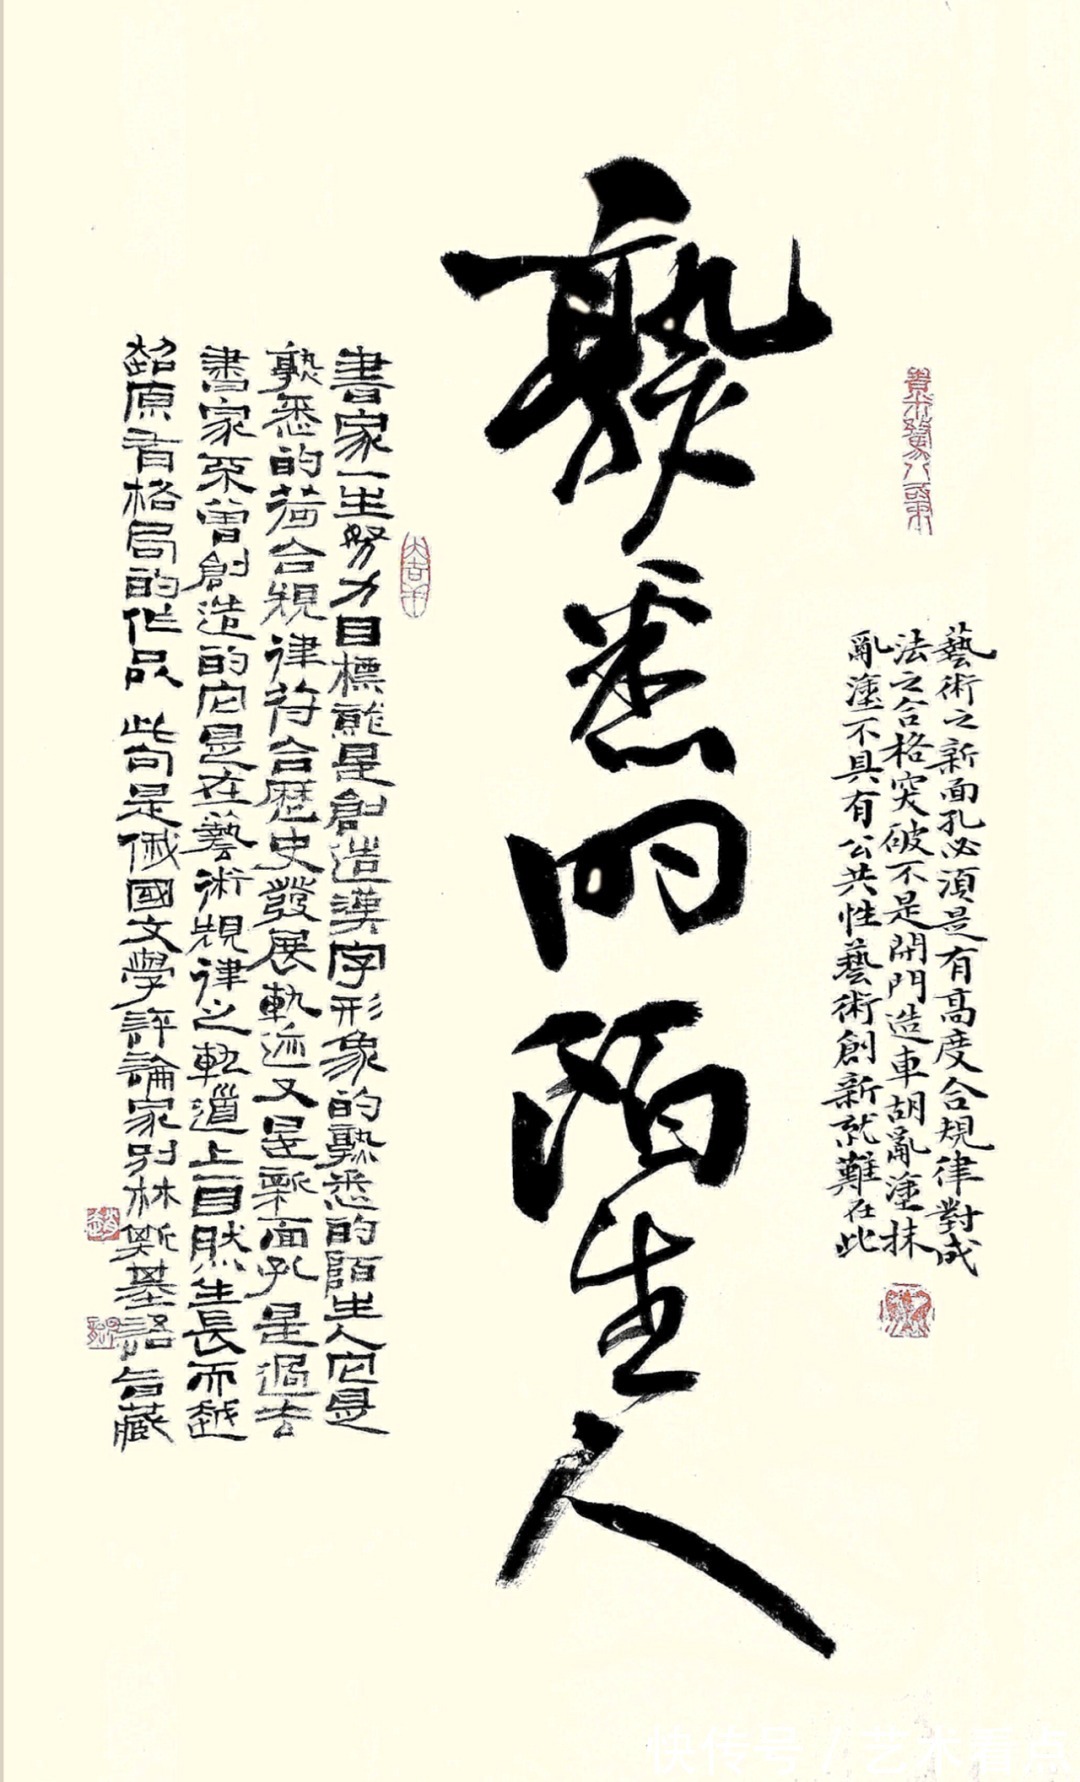 藝術之新面孔必須是有高度合規律對成
法之合格突破不是開門造車胡亂塗抹
亂塗不具有公共性藝術創新就難在此
熟悉的陌生人
書家一生努力目標就是創造漢字形象的熟悉的陌生人它是
熟悉的符合規律符合歷史發展軌迹又是新面孔是過去
書家不曾創造的它是在藝術規律之軌道上自然生長而越
超原有格局的作品此句是俄國文學評論家別林斯基語旨藏
快传号 / 艺术看点